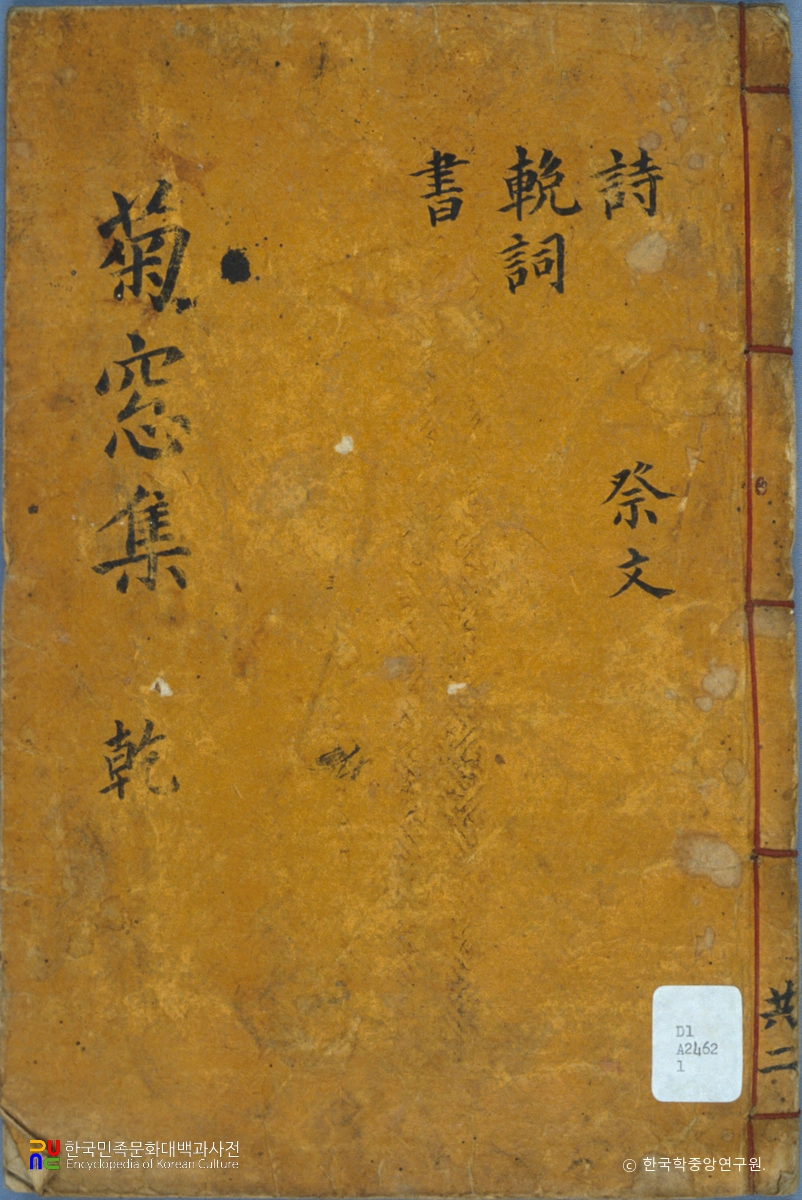 詩
祭文
輓詞
書
菊窓集 乾
共二
D1
A2462
1
한국민족문화대백과사전
Encyclopedia of Korean Culture
© 한국학중앙연구원.